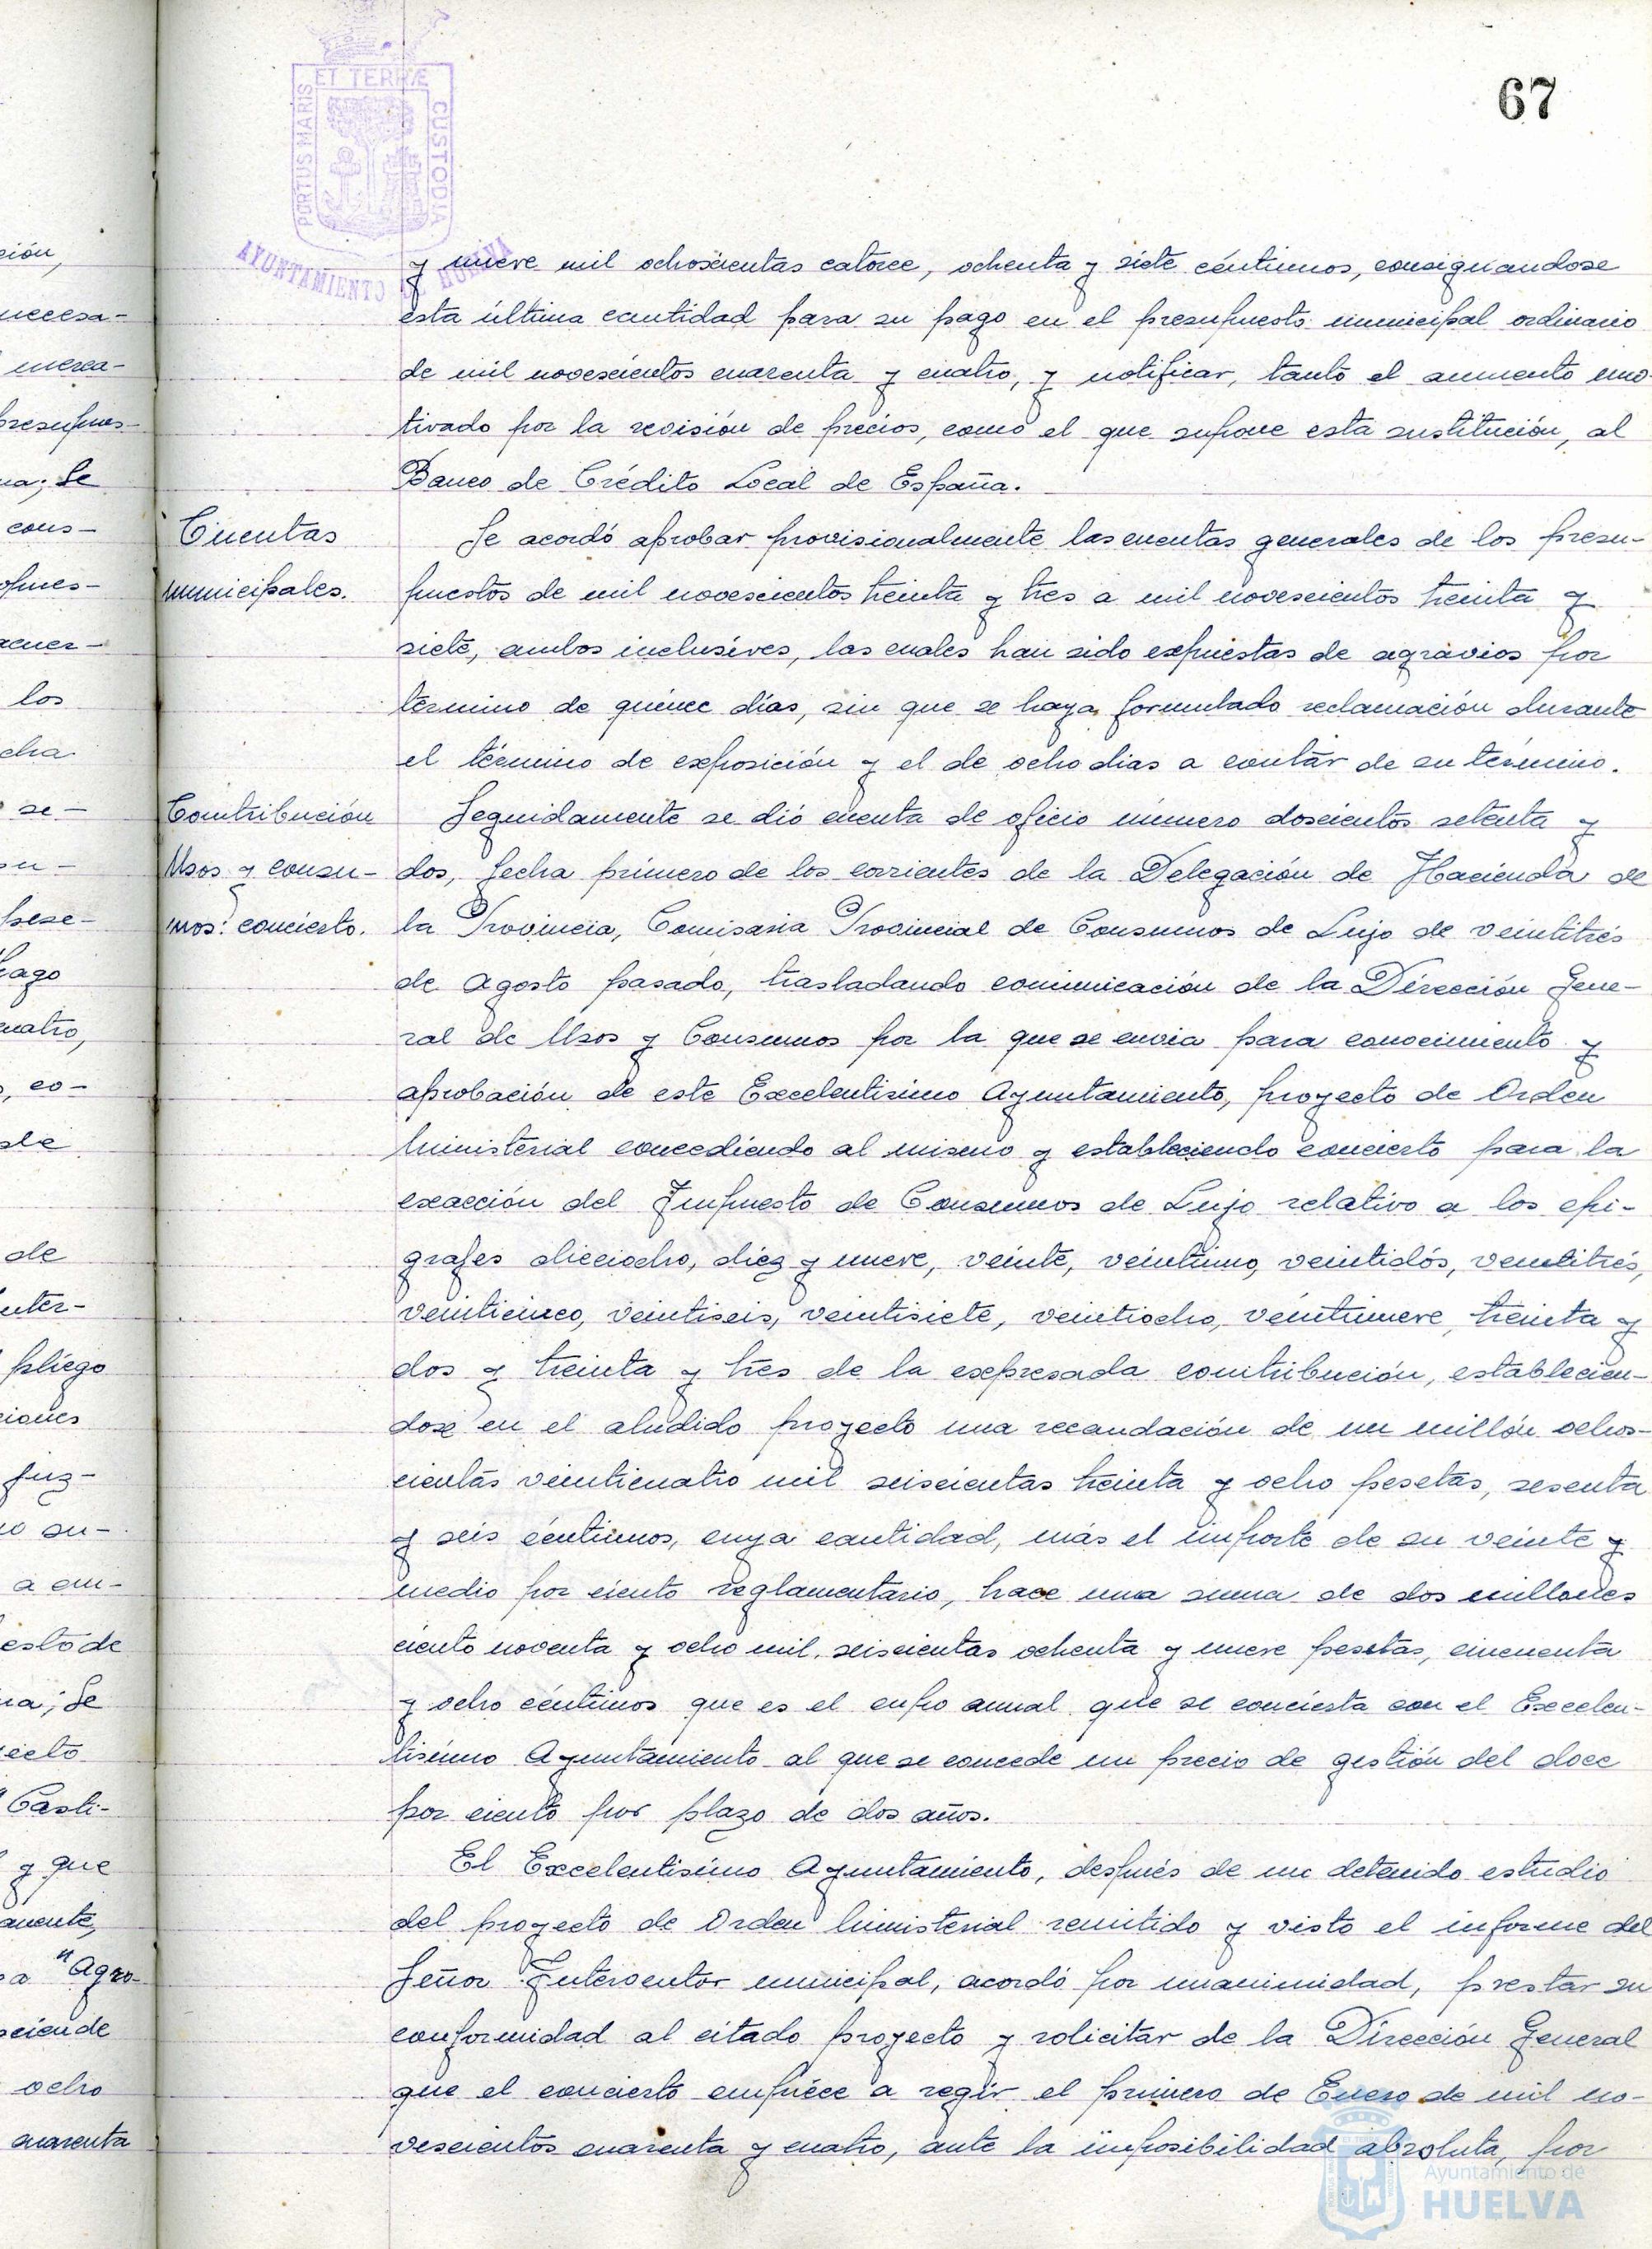 67
PORTUS MARIS ET TERRÆ CUSTODIA
AYUNTAMIENTO DE HUELVA
y nueve mil ochoscientas catorce, ochenta y siete céntimos, consignandose
esta última cantidad para su pago en el presupuesto municipal ordinario
de mil novescientos cuarenta y cuatro, y notificar, tanto el aumento mo-
tivado por la revisión de precios, como el que supone esta sustitución, al
Banco de Crédito Local de España.
Cuentas
municipales.
Se acordó aprobar provisionalmente las cuentas generales de los presu-
puestos de mil novescientos treinta y tres a mil novescientos treinta y
siete, ambos inclusives, las cuales han sido expuestas de agravios por
término de quince días, sin que se haya formulado reclamación durante
el término de exposición y el de ocho dias a contar de su término.
Contribución
Usos y consu-
mos: concierto.
Seguidamente se dió cuenta de oficio número doscientos setenta y
dos, fecha primero de los corrientes de la Delegación de Hacienda de
la Provincia, Comisaria Provincial de Consumos de Lujo de veintitrés
de Agosto pasado, trasladando comunicación de la Dirección Gene-
ral de Usos y Consumos por la que se envia para conocimiento y
aprobación de este Excelentisimo Ayuntamiento, proyecto de Orden
Ministerial concediendo al mismo y estableciendo concierto para la
exacción del Impuesto de Consumos de Lujo relativo a los epi-
grafes dieciocho, diez y nueve, veinte, veintiuno, veintidós, veintitrés,
veinticinco, veintiseis, veintisiete, veintiocho, veintinueve, treinta y
dos y treinta y tres de la expresada contribución, establecien-
dose en el aludido proyecto una recaudación de un millón ochos-
cientas veinticuatro mil seiscientas treinta y ocho pesetas, sesenta
y seis céntimos, cuya cantidad, más el importe de su veinte y
medio por ciento reglamentario, hace una suma de dos millones
ciento noventa y ocho mil seiscientas ochenta y nueve pesetas, cincuenta
y ocho céntimos que es el cupo anual que se concierta con el Excelen-
tisimo Ayuntamiento al que se concede un precio de gestión del doce
por ciento por plazo de dos años.
El Excelentisimo Ayuntamiento, después de un detenido estudio
del proyecto de Orden Ministerial remitido y visto el informe del
Señor Interventor municipal, acordó por unanimidad, prestar su
conformidad al citado proyecto y solicitar de la Dirección General
que el concierto empiece a regir el primero de Enero de mil no-
vescientos cuarenta y cuatro, ante la imposibilidad absoluta, por
Ayuntamiento de
HUELVA